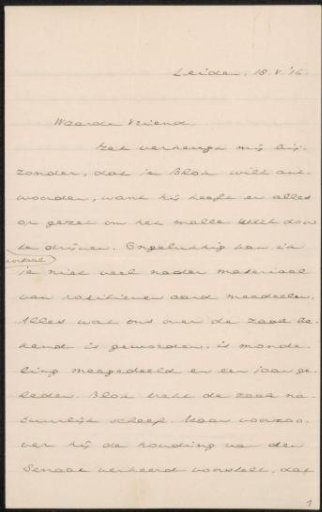 Leiden, 18.V.'15.
Waarde Vriend
Het verheugt mij bij-
zonder, dat je Blok wilt ant-
woorden, want hij heeft er alles
op gezet om het malle door
te drijven. Ongelukkig kan ik
je niet veel nader materiaal
van positieven aard meedeelen.
Alles wat ons over de zaak be-
kend is geworden, is monde-
ling meegedeeld en een jaar ge-
leden. Blok trekt de zaak na-
tuurlijk scheef. Maar voorzoo-
ver hij de houding van den
Senaat verkeerd voorstelt, dat
1